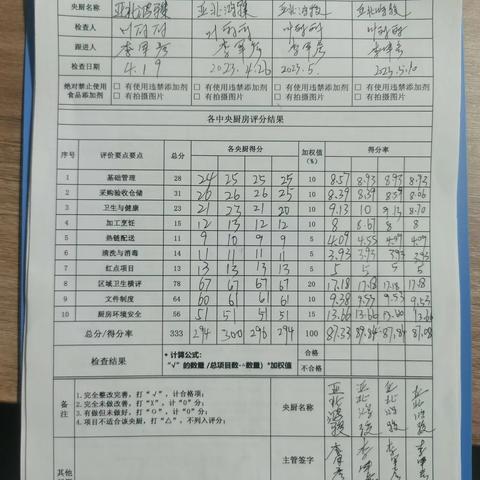 央厨名称 亚北鸿骏 亚北鸿骏 亚北鸿骏 亚北鸿骏
检查人
跟进人
检查日期 4.19 2023.4.26 2023.5. 2023.5.10
绝对禁止使用食品添加剂 □ 有使用违禁添加剂 □ 有使用违禁添加剂 □ 有使用违禁添加剂 □ 有使用违禁添加剂
□ 有拍摄图片 □ 有拍摄图片 □ 有拍摄图片 □ 有拍摄图片
各中央厨房评分结果
序号 评价要点要点 总分 各央厨得分 加权值(%) 得分率
1 基础管理 28 24 25 25 25 10 8.57 8.93 8.93 8.93
2 采购验收仓储 31 26 26 26 25 10 8.39 8.39 8.39 8.06
3 卫生与健康 23 21 23 21 20 10 9.13 10 9.13 8.70
4 加工烹饪 15 12 13 12 12 10 8 8.67 8 8
5 热链配送 11 9 10 9 9 5 4.09 4.55 4.09 4.09
6 清洗与消毒 14 11 11 11 11 5 3.93 3.93 3.93 3.93
7 红点项目 13 13 13 13 13 5 5 5 5 5
8 区域卫生横评 78 67 67 67 67 20 17.18 17.18 17.18 17.18
9 文件制度 64 60 61 61 61 10 9.38 9.53 9.53 9.53
10 厨房环境安全 56 51 51 51 51 15 13.66 13.66 13.66
总分/得分率 333 294 300 296 294 100 87.33 89.84 87.84 87.08
检查结果 * 计算公式: 合格
"√" 的数量 /总项目数-△数量）*加权值 不合格
备注
1.完全整改完善，打 "√"，计合格项;
2.完全未做改善，打 "X"，计 "0" 分;
3.有做但未做好，打 "O"，计 "0" 分;
4.项目不适合该央厨，打 "△"，不列入评分;
央厨名称 亚北鸿骏 亚北鸿骏 亚北鸿骏 亚北鸿骏
主管签字
其他